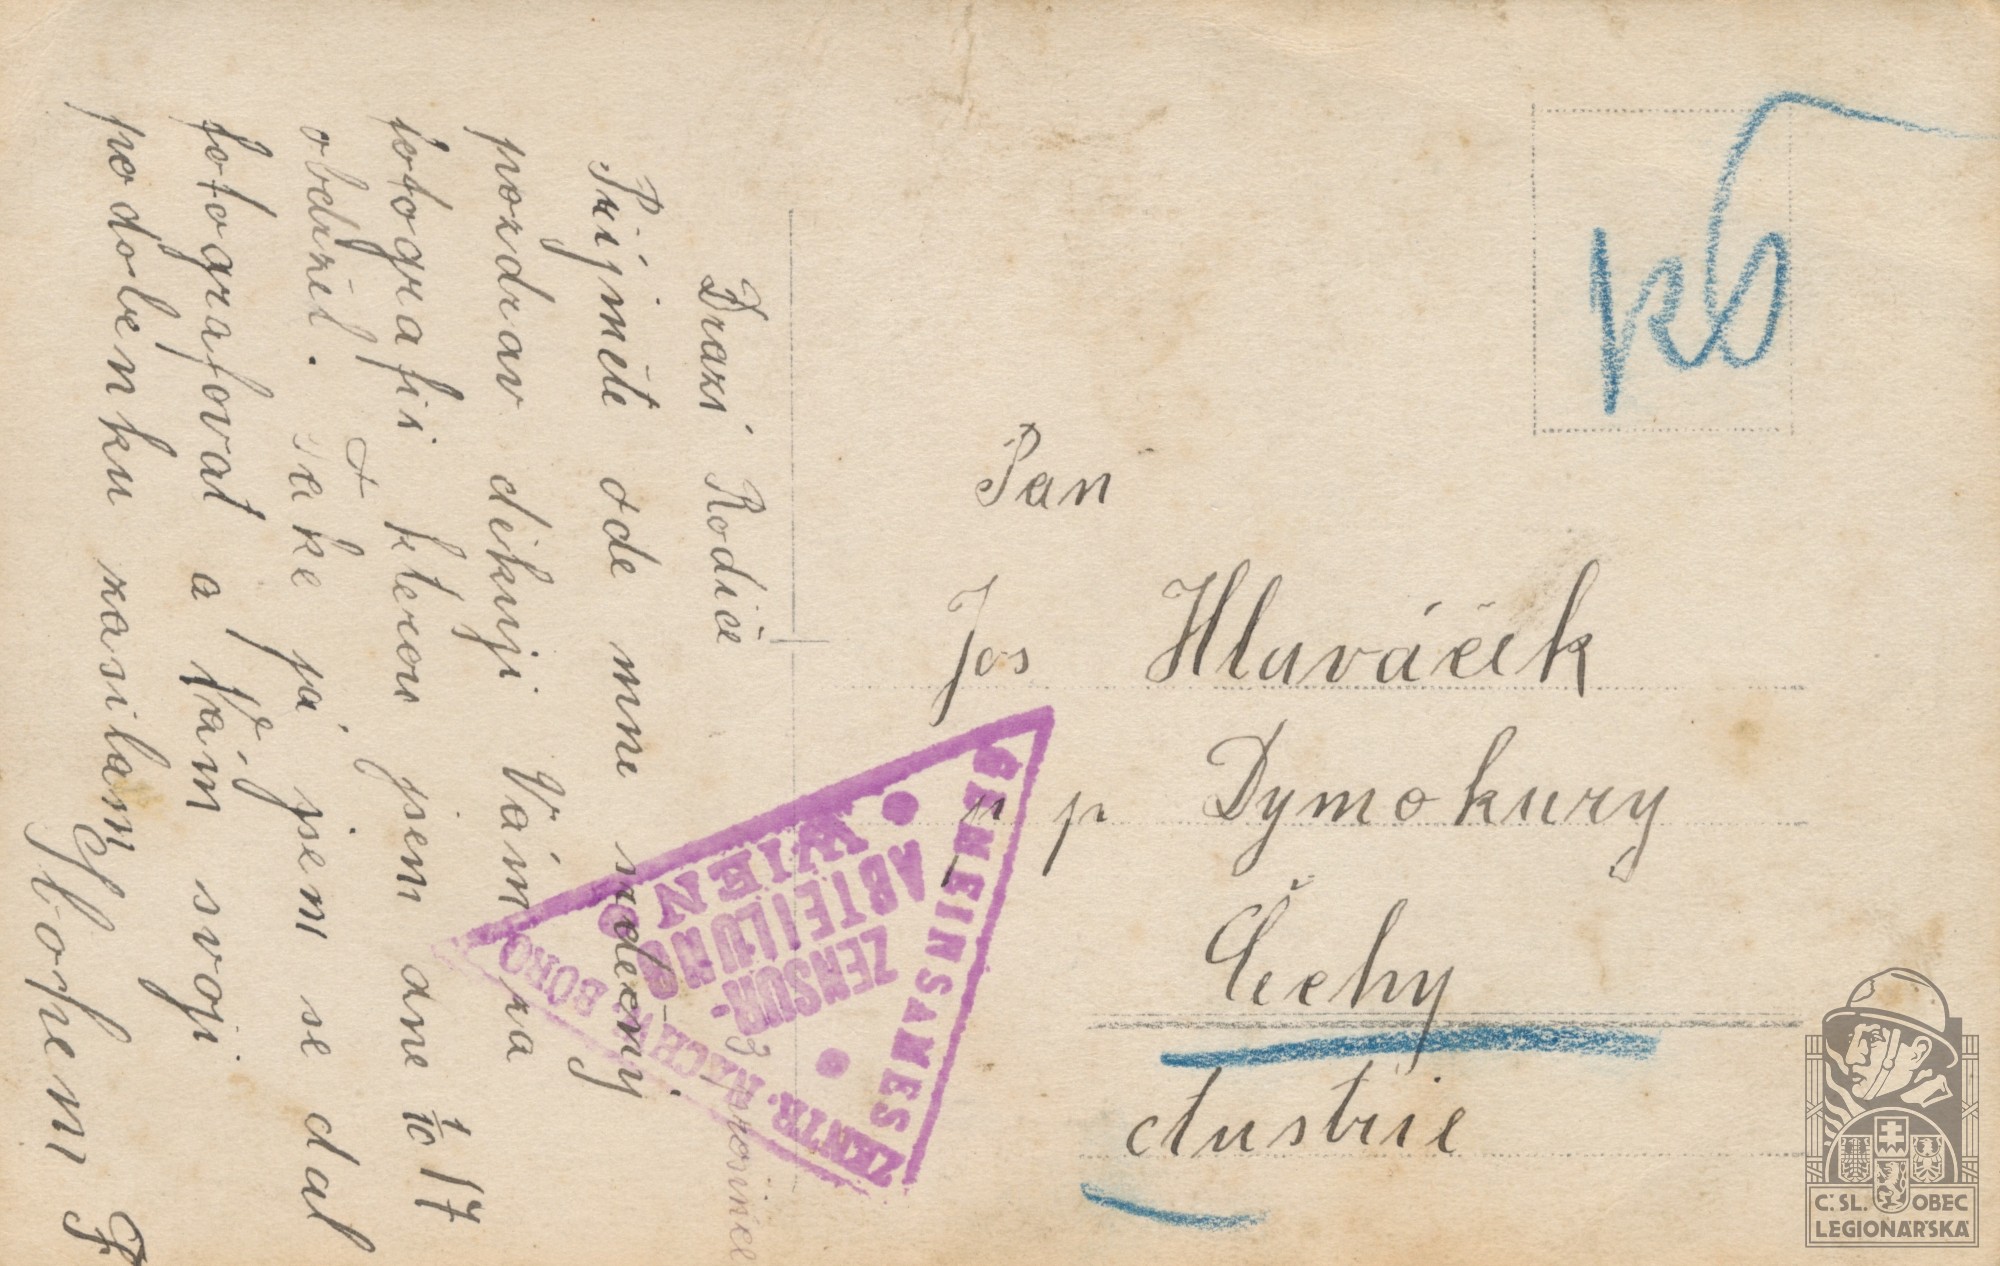 3 prosince
Drazí Rodiče
Přijměte ode mne srdečný
pozdrav děkuji Vám za
fotografii kterou jsem dne 1/10 17
obdržel. Také já jsem se dal
fotografovat a Vám svoji
podobenku zasilam Sbohem F
Pan
Jos Hlaváček
p p Dymokury
Čechy
Austrie
GEMEINSAMES
ZENTR. NACHW. BÜRO
ZENSUR-
ABTEILUNG
WIEN
Č.SL. OBEC
LEGIONÁŘSKÁ